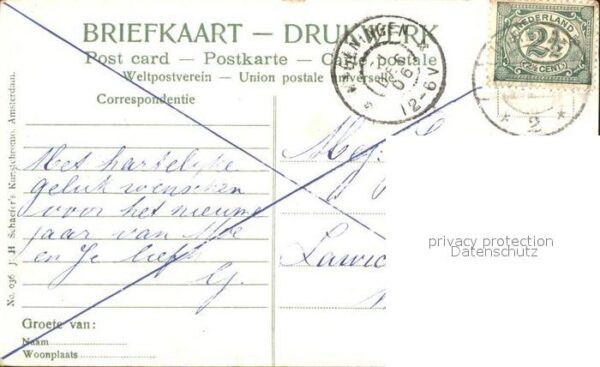 BRIEFKAART — DRUKWERK
Post card — Postkarte — Carte postale
Weltpostverein — Union postale universelle
Correspondentie
NEDERLAND
2½
CENT
12-6V
2
Met hartelijke
geluk wenschen
voor het nieuwe
jaar van Moe
en Je
G.
Mej.
Lawic
privacy protection
Datenschutz
Groete van:
Naam
Woonplaats
No. 936 J. H. Schaefer's Kunstchromo, Amsterdam.